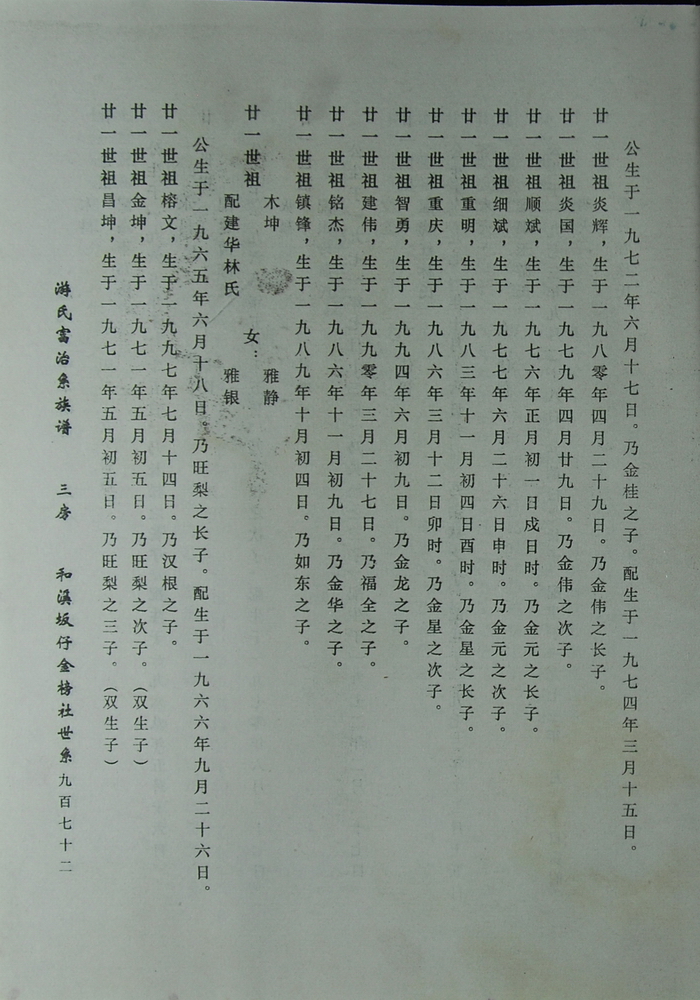 公生于一九七二年六月十七日。乃金桂之子。配生于一九七四年三月十五日。
廿一世祖炎辉，生于一九八零年四月二十九日。乃金伟之长子。
廿一世祖炎国，生于一九七九年四月廿九日。乃金伟之次子。
廿一世祖顺斌，生于一九七六年正月初一日戍日时。乃金元之长子。
廿一世祖细斌，生于一九七七年六月二十六日申时。乃金元之次子。
廿一世祖重明，生于一九八三年十一月初四日酉时。乃金星之长子。
廿一世祖重庆，生于一九八六年三月十二日卯时。乃金星之次子。
廿一世祖智勇，生于一九九四年六月初九日。乃金龙之子。
廿一世祖建伟，生于一九九零年三月二十七日。乃福全之子。
廿一世祖铭杰，生于一九八六年十一月初九日。乃金华之子。
廿一世祖镇锋，生于一九八九年十月初四日。乃如东之子。
廿一世祖
木坤
配建华林氏
女：
雅静
雅银
公生于一九六五年六月十八日。乃旺梨之长子。配生于一九六六年九月二十六日。
廿一世祖榕文，生于一九九七年七月十四日。乃汉根之子。
廿一世祖金坤，生于一九七一年五月初五日。乃旺梨之次子。（双生子）
廿一世祖昌坤，生于一九七一年五月初五日。乃旺梨之三子。（双生子）
游氏富治系族谱 三房 和溪坂仔金榜社世系九百七十二